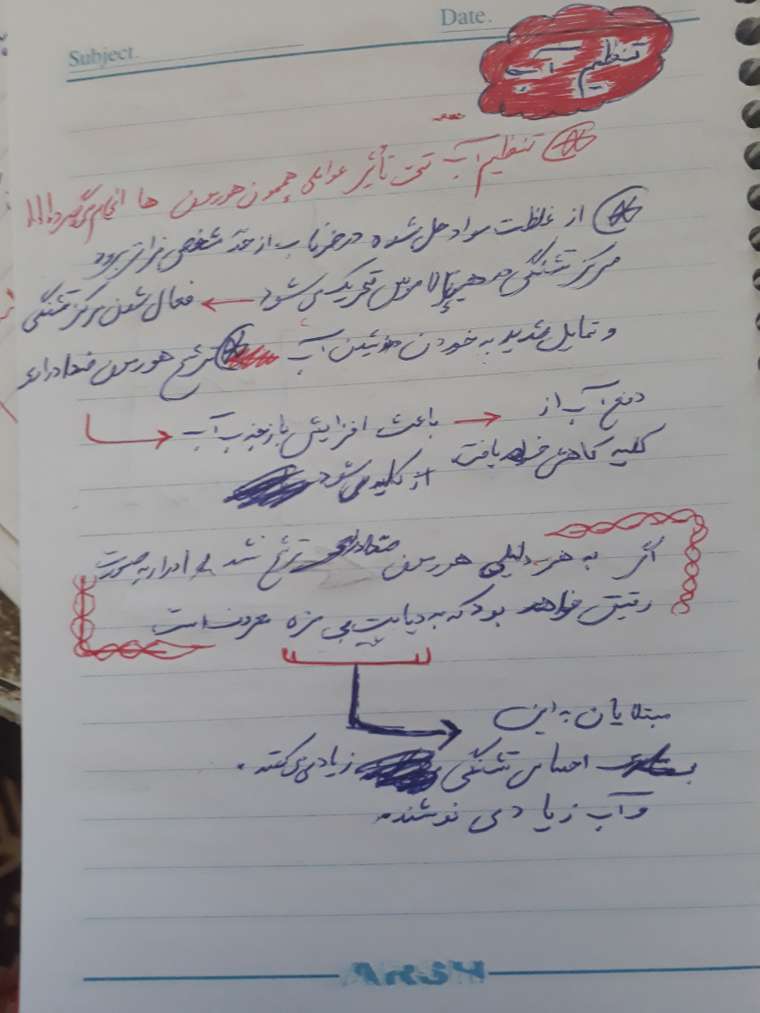 Subject
Date.
تنظیم آب
تنظیم آب تحت تأثیر عواملی همچون هورمون ها انجام می‌گیرد!!!
از غلظت مواد حل شده در خوناب از حد مشخصی فراتر برود
مرکز تشنگی در هیپوتالاموس تحریک می‌شود ← فعال شدن مرکز تشنگی
و تمایل شدید به خوردن نوشیدن آب ترشح هورمون ضدادراری
باعث افزایش بازجذب آب → دفع آب از
از کلیه می‌شود کلیه کاهش خواهد یافت
اگر به هر دلیلی هورمون ضدادراری ترشح نشد ادرار به صورت
رقیق خواهد بود که به دیابت بی مزه معروف است
مبتلایان به این
احساس تشنگی زیادی می‌کنند.
و آب زیادی نوشند.
ARSH